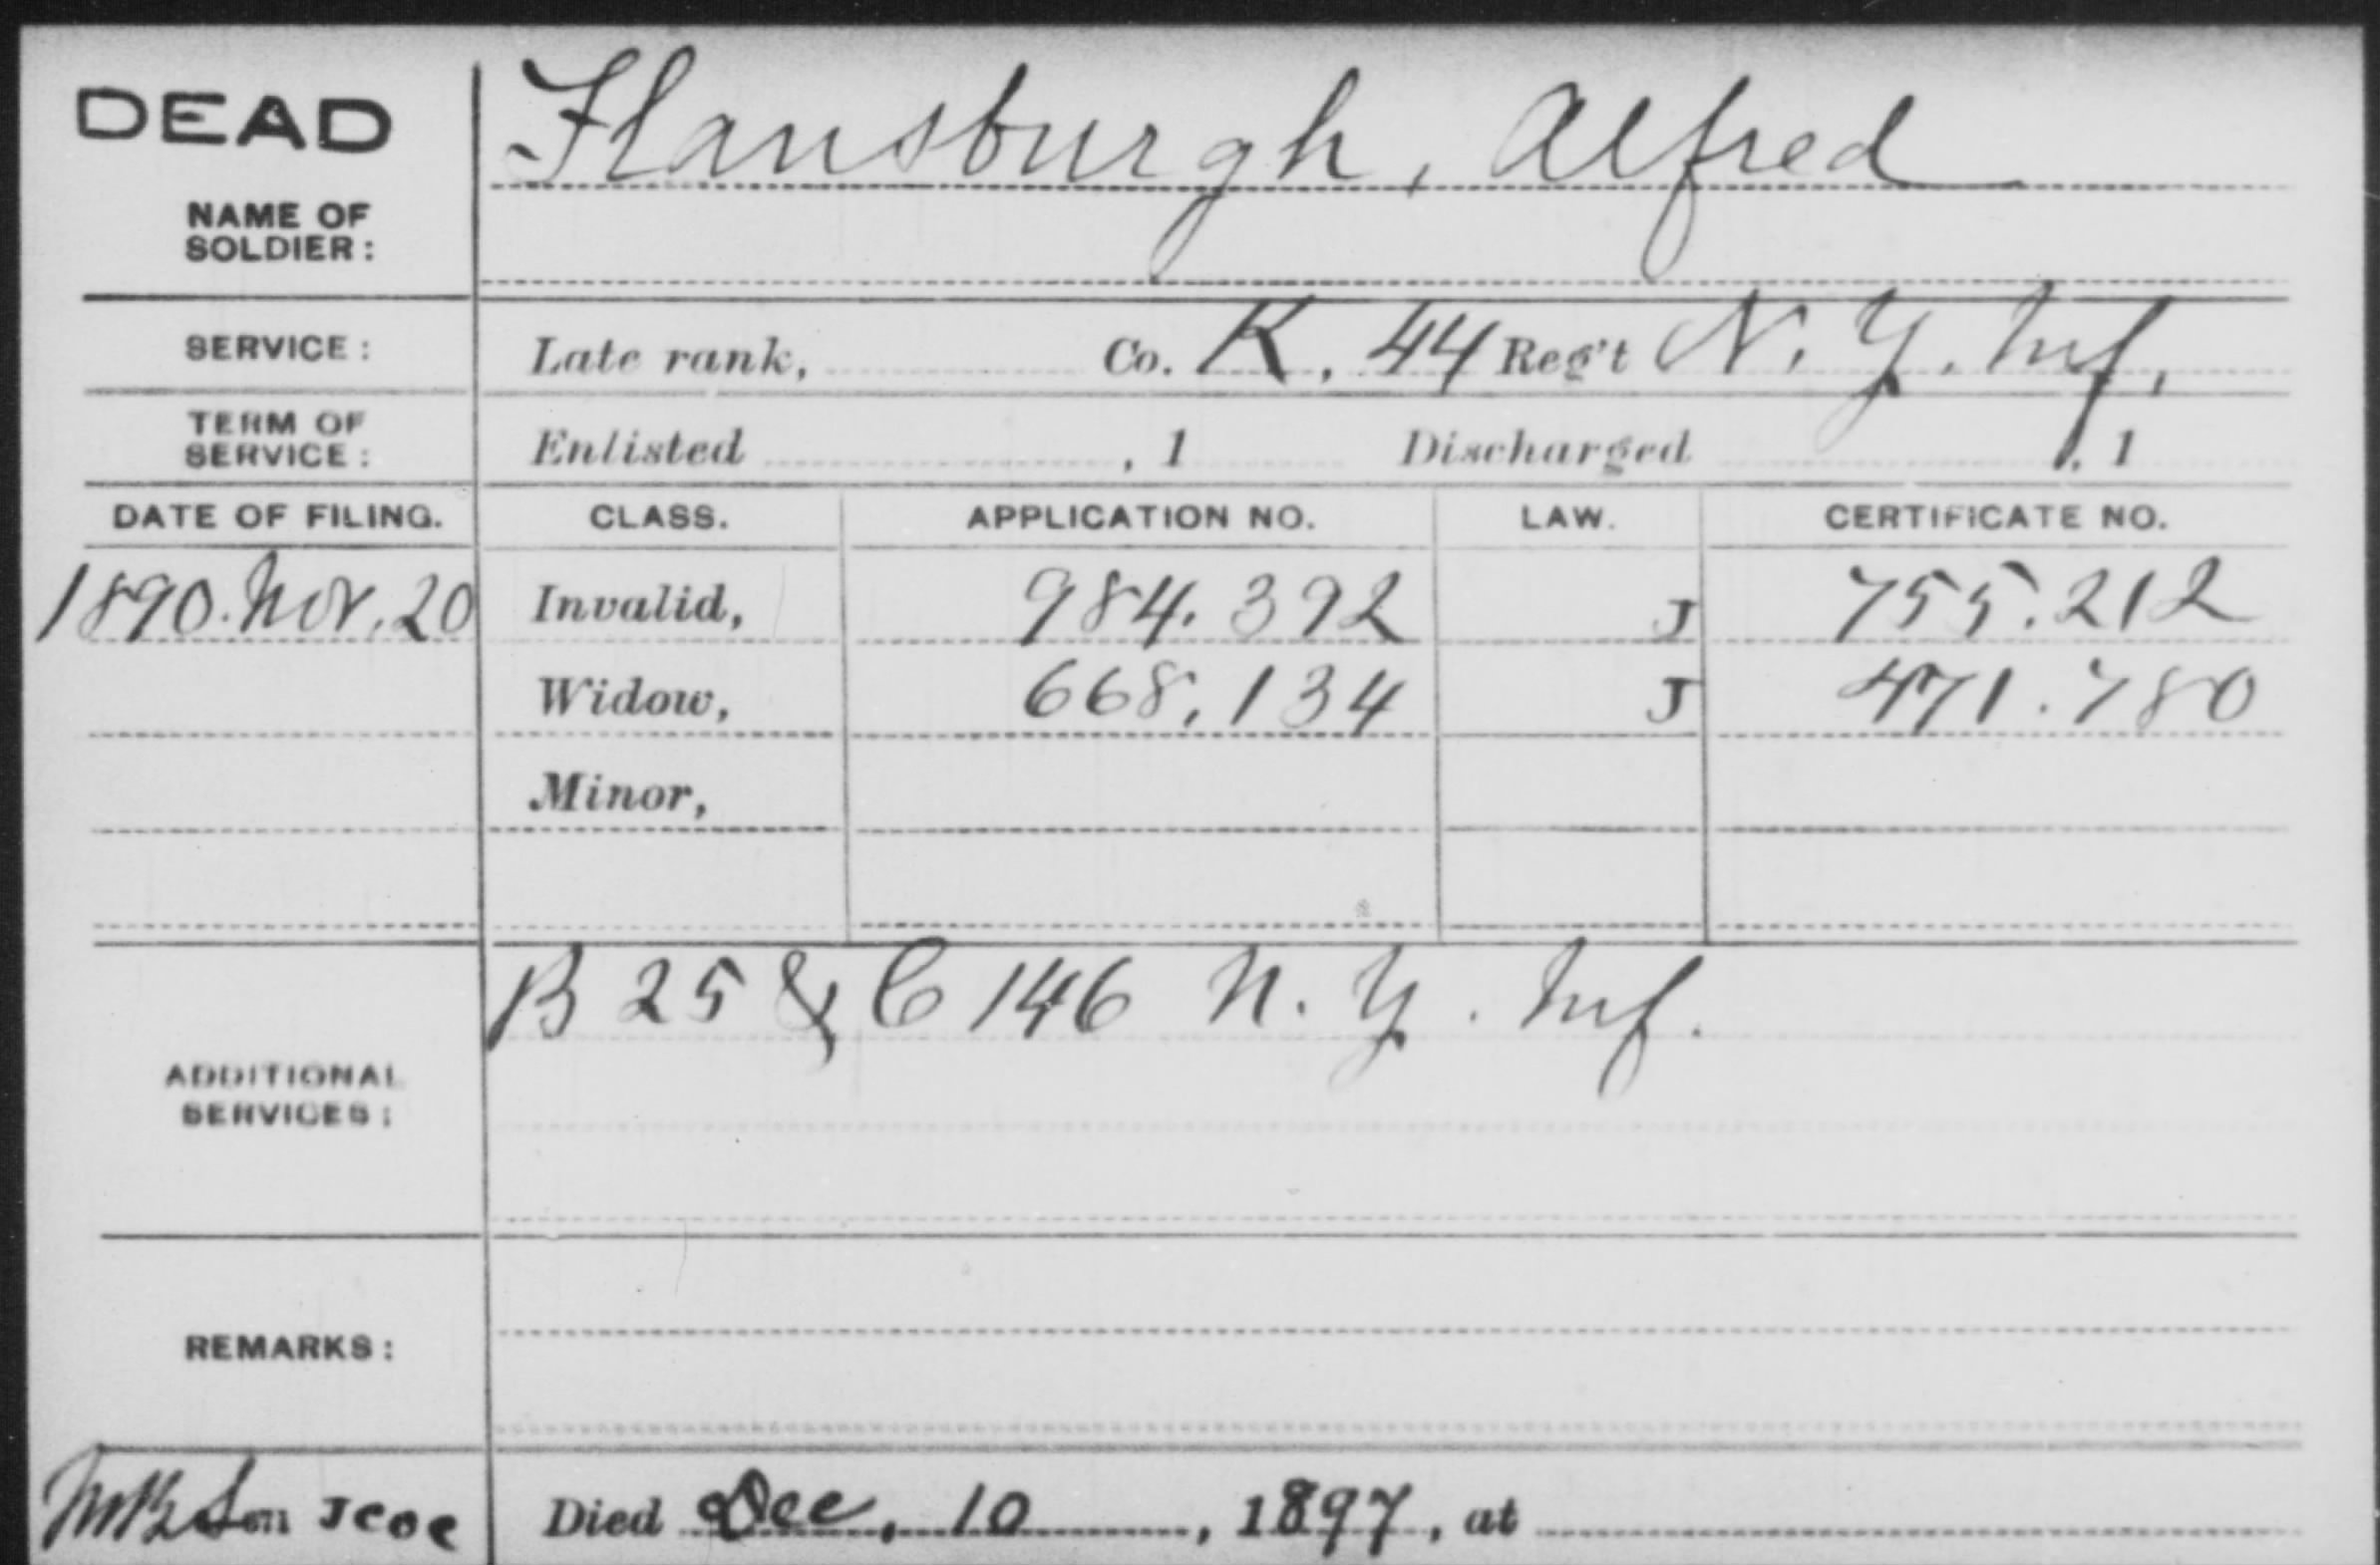 DEAD
Flansburgh, Alfred
NAME OF
SOLDIER:
SERVICE: Late rank, Co. K, 44 Reg't N. Y. Inf.
TERM OF
SERVICE: Enlisted , 1 Discharged , 1
DATE OF FILING. CLASS. APPLICATION NO. LAW. CERTIFICATE NO.
1890. Nov. 20 Invalid, 984.392 J 755.212
Widow, 668,134 J 471.780
Minor,
B 25 & C 146 N. Y. Inf.
ADDITIONAL
SERVICES:
REMARKS:
Died Dec, 10, 1897, at